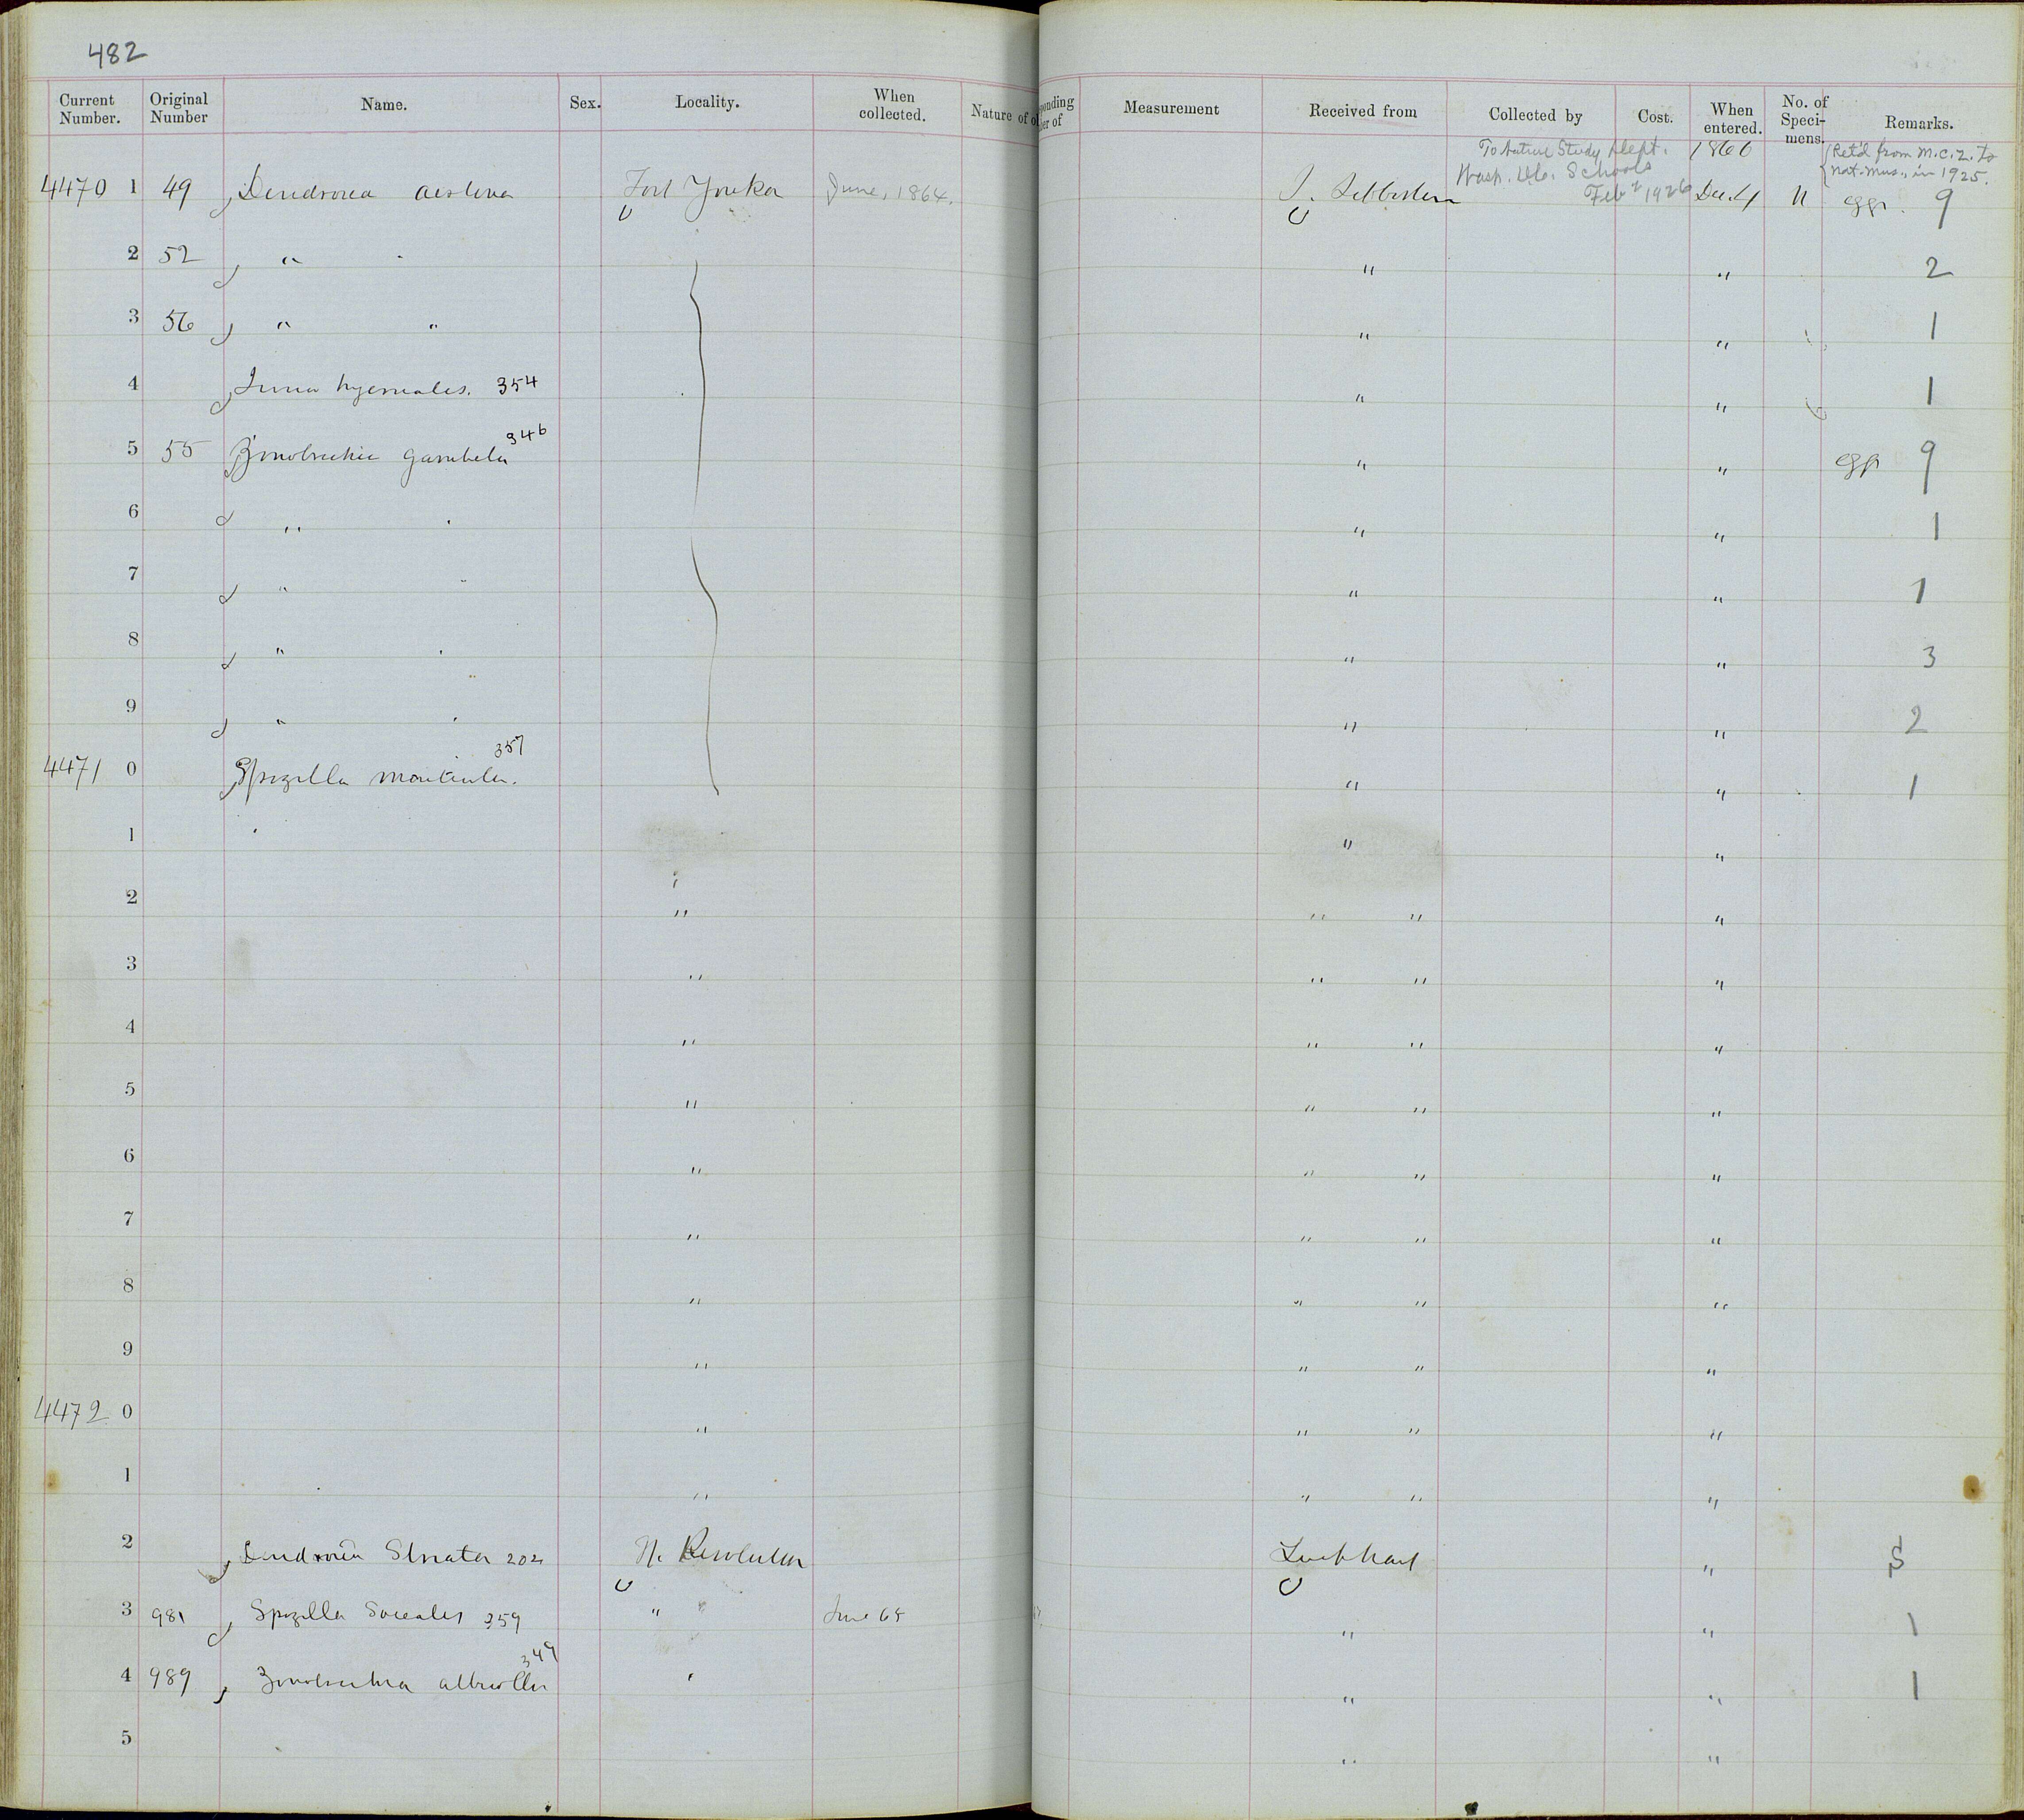 482
Current Number. Original Number Name. Sex. Locality. When collected. Nature of Measurement Received from Collected by Cost. When entered. No. of Speci-mens. Remarks.
To Nature Study Dept. 1866 Ret'd from M.C.Z. to
Wash. D.C. Schools Nat. Mus., in 1925.
4470 1 49 Dendroica aestiva Fort Youkon June, 1864. Feb 2 1926 Dec. 4 N eggs. 9
2 52 " " " " 2
3 56 " " " " 1
4 Junco hyemalis. 354 " " 1
5 55 Zonotrichia gambeli 346 " " egg 9
6 " " " " 1
7 " " " " 1
8 " " " " 3
9 " " " " 2
4471 0 Spizella monticola. 357 " " 1
1 " "
2 " " " "
3 " " " "
4 " " " "
5 " " " "
6 " " " "
7 " " " "
8 " " " "
9 " " " "
4472 0 " " " "
1 " " " "
2 Dendroica Striata 202 N. Resolution Lockhart " 5
3 981 Spizella Socialis 359 " June 65 " " 1
4 989 Zonotrichia albicollis 349 " " " 1
5 " "